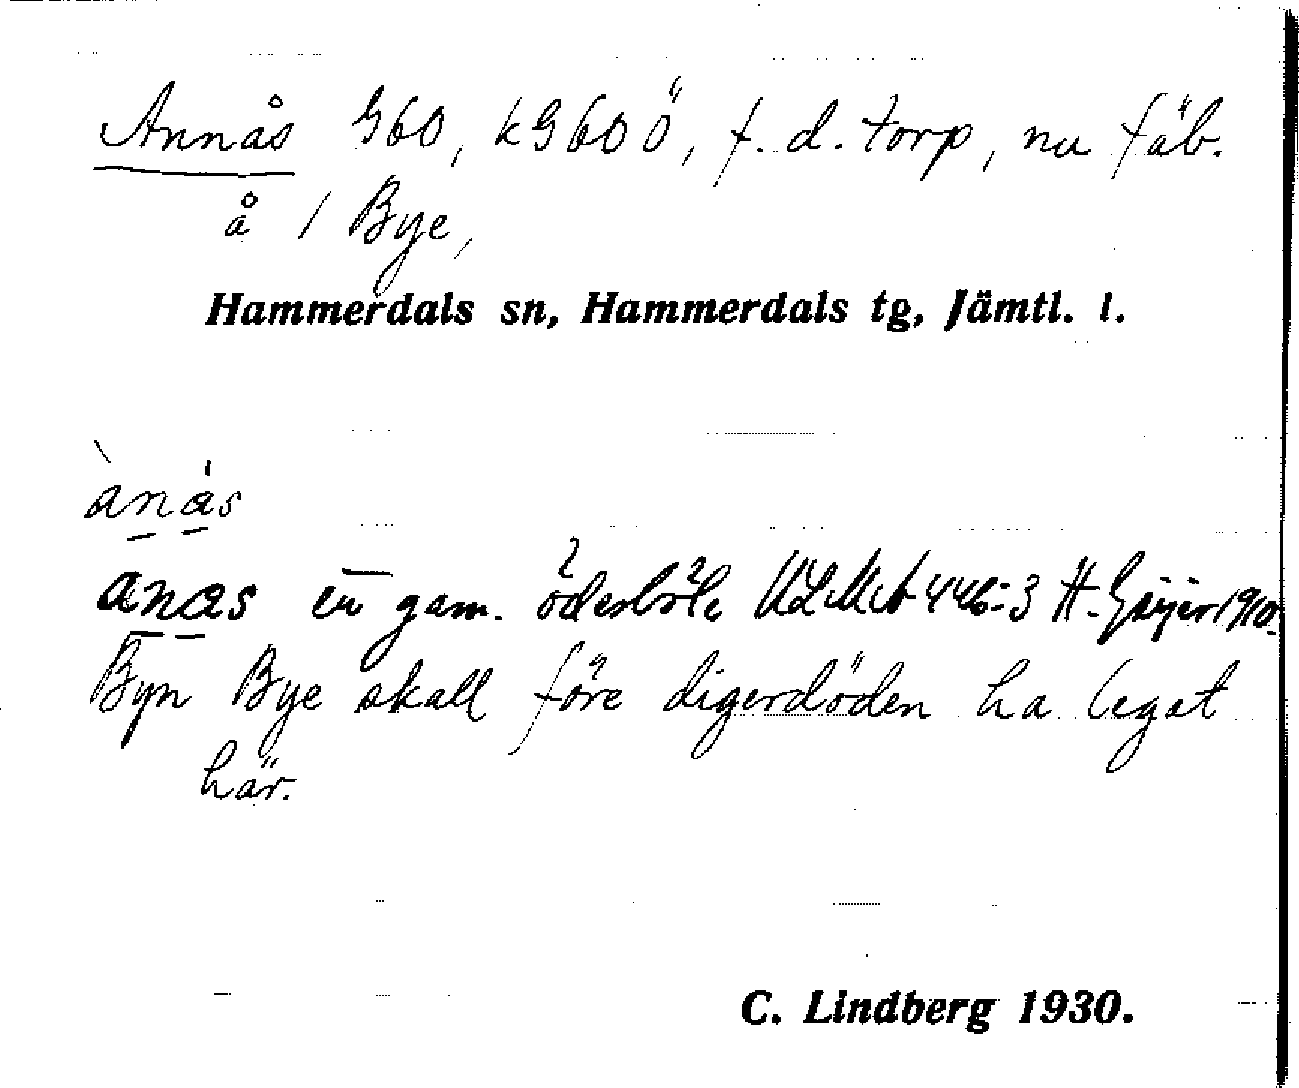 Annås G60, kG60ö, f. d. torp, nu fäb.
å 1 Bye,
Hammerdals sn, Hammerdals tg, Jämtl. l.
ànás
anas en gam. ULMA 446:3 H. Geijer 1910.
Byn Bye skall före digerdöden ha legat
här.
C. Lindberg 1930.